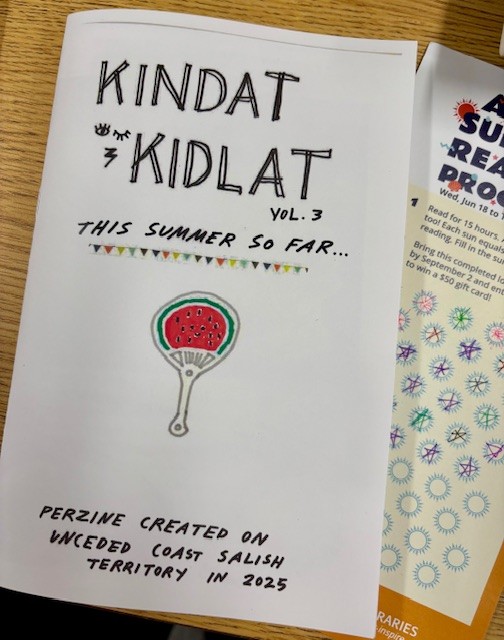 KINDAT
& KIDLAT
VOL. 3
THIS SUMMER SO FAR...
PERZINE CREATED ON
UNCEDED COAST SALISH
TERRITORY IN 2025
Wed, Jun 18 to
1
Read for 15 hours,
too! Each sun equals
reading. Fill in the
Bring this completed
by September 2 and
to win a $50 gift card!